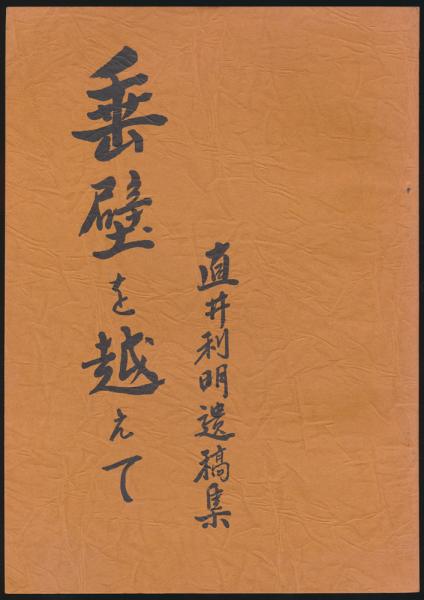 垂壁を越えて
直井利明遺稿集